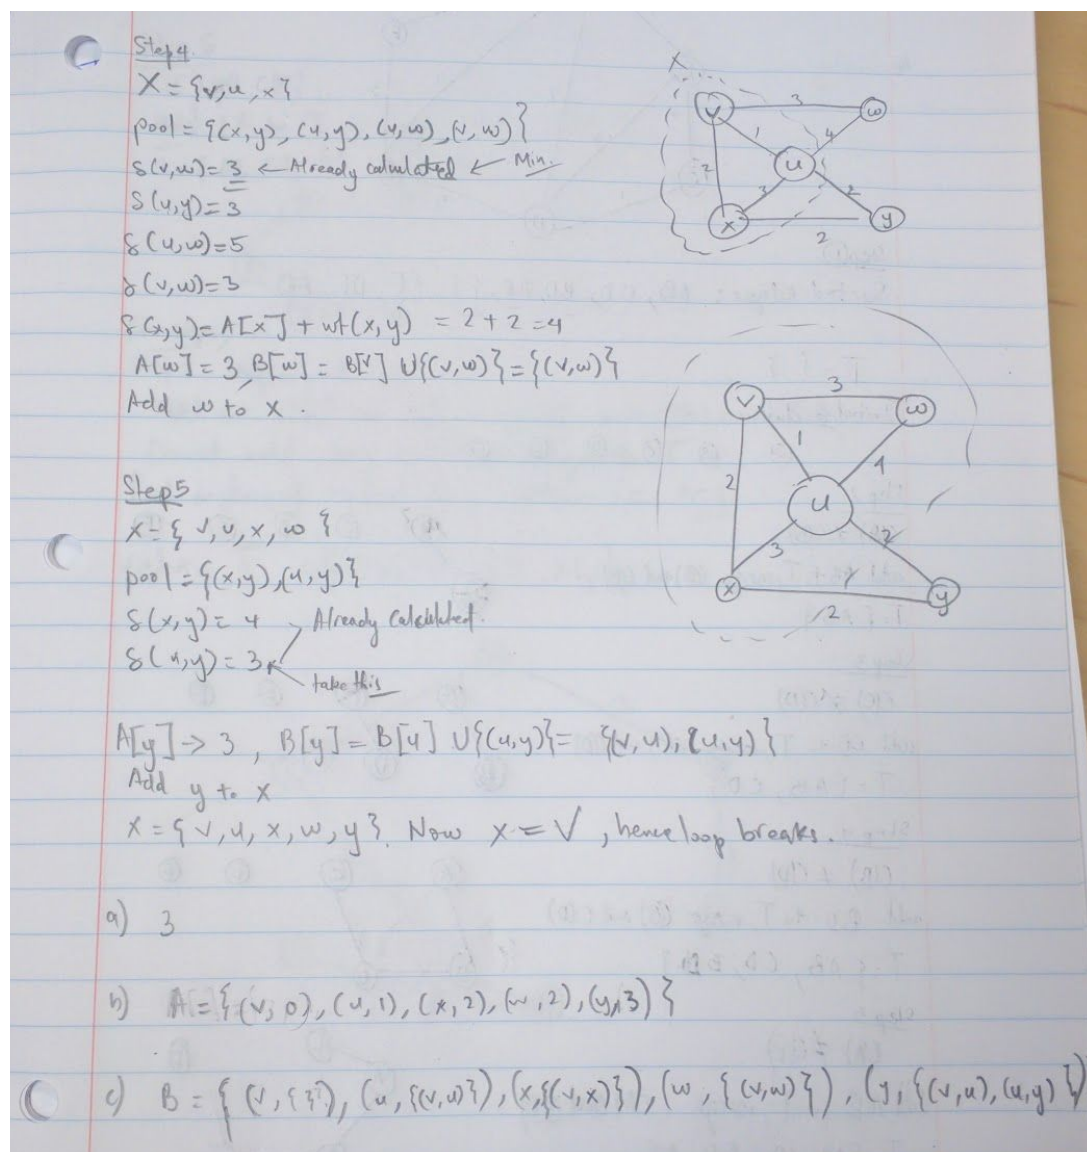 Step 4
X = {v, u, x}
pool = {(x, y), (u, y), (u, w), (v, w)}
δ(v, w) = 3 ← Already calculated ← Min.
δ(u, y) = 3
δ(u, w) = 5
δ(v, w) = 3
δ(x, y) = A[x] + wt(x, y) = 2 + 2 = 4
A[w] = 3, B[w] = B[v] U {(v, w)} = {(v, w)}
Add w to X.
X
v 3 w
1 4
2 u
3 2
x 2 y
Step 5
X = {v, u, x, w}
pool = {(x, y), (u, y)}
δ(x, y) = 4
Already calculated.
δ(u, y) = 3
take this
v 3 w
1 4
2 u
3 2
x 2 y
A[y] → 3, B[y] = B[u] U {(u, y)} = {(v, u), (u, y)}
Add y to X
X = {v, u, x, w, y}. Now X = V, hence loop breaks.
a) 3
b) A = {(v, 0), (u, 1), (x, 2), (w, 2), (y, 3)}
c) B = {(v, { }), (u, {(v, u)}), (x, {(v, x)}), (w, {(v, w)}), (y, {(v, u), (u, y)})